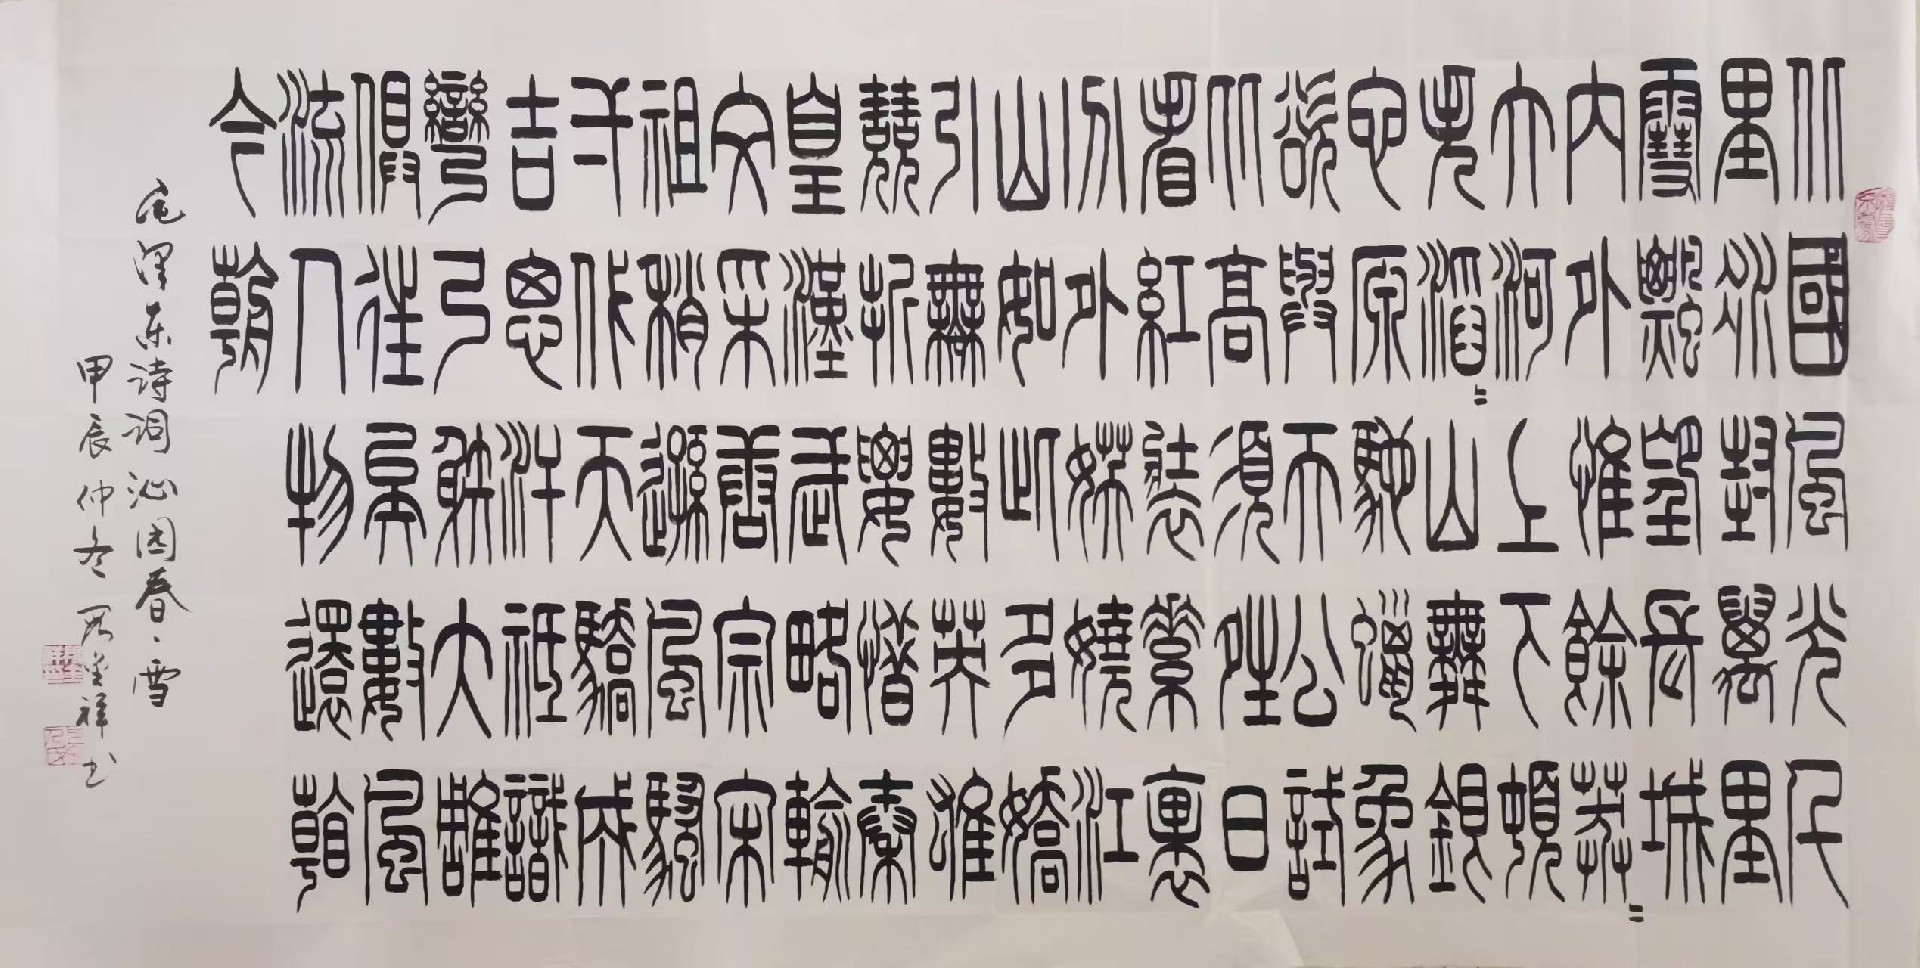 北國風光千
里冰封萬里
雪飄望長城
內外惟餘莽〻
大河上下頓
失滔〻山舞銀
蛇原馳蠟象
欲與天公試
比高須晴日
看紅裝素裹
分外妖嬈江
山如此多嬌
引無數英雄
競折腰惜秦
皇漢武略輸
文采唐宗宋
祖稍遜風騷
一代天驕成
吉思汗祗識
彎弓射大雕
俱往矣數風
流人物還看
今朝
毛泽东诗词沁园春·雪
甲辰仲冬 祥书